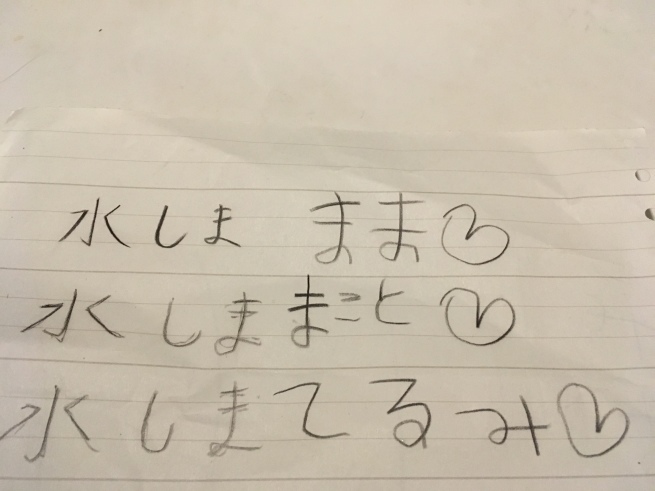 水しま まま♡
水しままこと♡
水しまてるみ♡